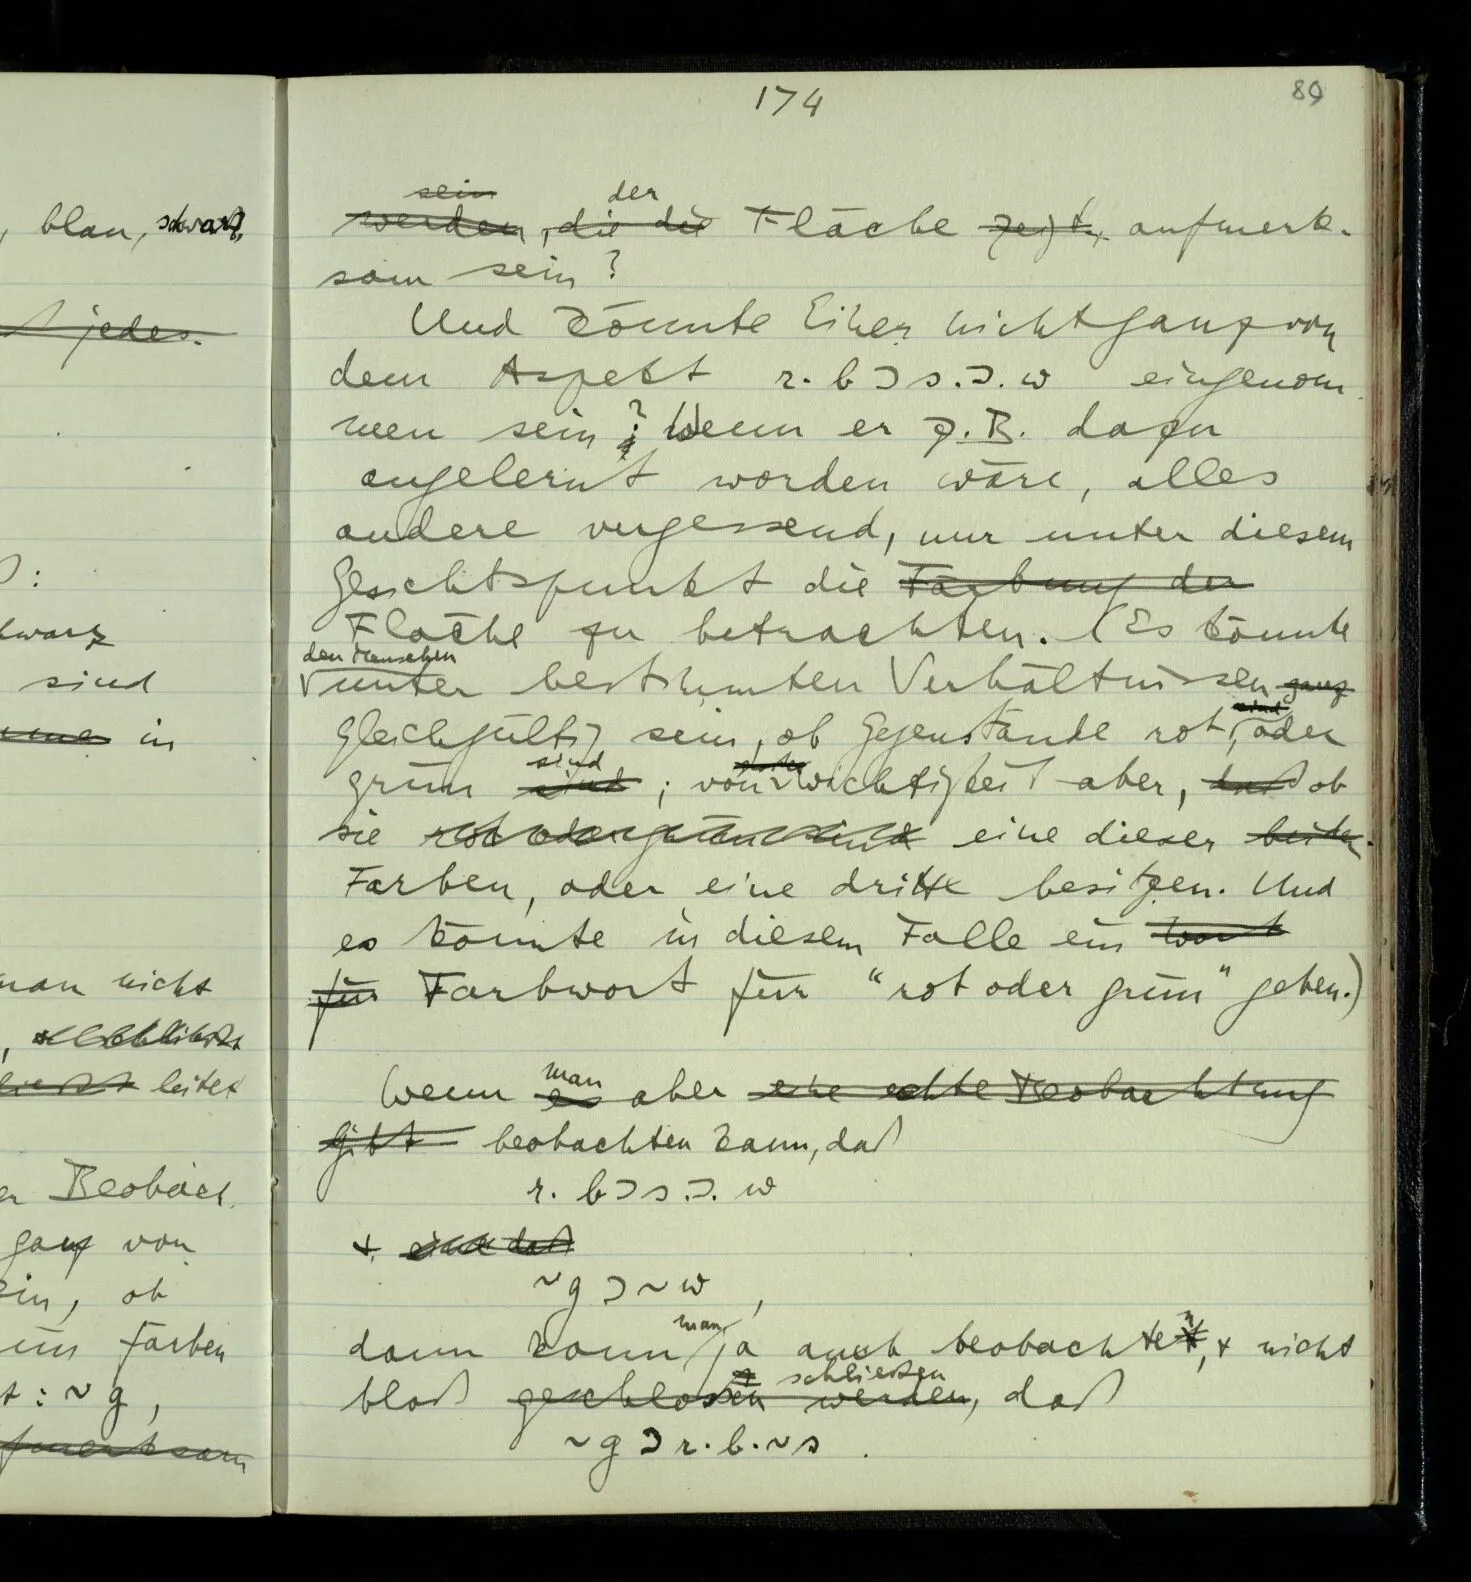 174
89
, blau, schwarz,
jedes.
:
sind
in
man nicht
leitet
Beobach
ganz von
ein, ob
färben
: ~g,
sein der
werden, die die Fläche zeigt, aufmerk-
sam sein?
Und könnte Einer nicht ganz von
dem Aspekt r. b ⊃ s .⊃. w eingenom
men sein? Wenn er z.B. dazu
angelernt worden wäre, alles
andere vergessend, nur unter diesem
Gesichtspunkt die Färbung der
Fläche zu betrachten. (Es könnte
den Menschen
unter bestimmten Verhältnissen ganz
sind
gleichgültig sein, ob Gegenstände rot, oder
sind
grün sind ; von Wichtigkeit aber, daß ob
sie rot oder grün sind eine dieser beiden
Farben, oder eine dritte besitzen. Und
es könnte in diesem Falle ein Wort
für Farbwort für "rot oder grün" geben.)
man
Wenn es aber eine echte Beobachtung
gibt beobachten kann, daß
r. b ⊃ s .⊃. w
+ daß
~g ⊃ ~w ,
man
dann kann ja auch beobachten, + nicht
schließen
bloß geschlossen werden, daß
~g ⊃ r. b. ~s .